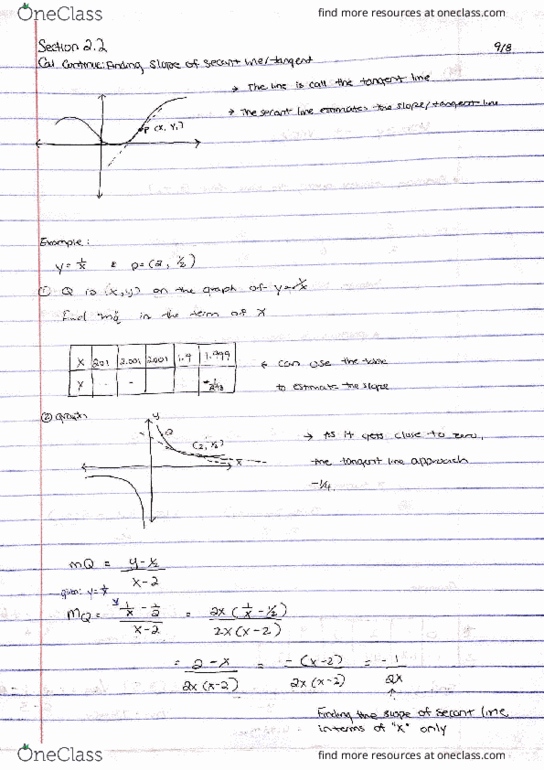 OneClass
find more resources at oneclass.com
Section 2.2
9/8
Cal Continue: Finding Slope of secant line/tangent
→ The line is call the tangent line
→ The secant line estimates the slope/tangent line
P (x, y,)
Example:
y = 1/x & p = (2, 1/2)
① Q is (x,y) on the graph of y = 1/x
Find mQ in the term of x
X 2.01 2.001 1.9 1.999
Y
← can use the table
to estimate the slope
② graph
y
Q
(2, 1/2)
x
→ As it gets close to zero,
the tangent line approach
-1/4.
mQ = y - 1/2 / x - 2
given: y = 1/x
mQ = 1/x - 1/2 / x - 2 = 2x (1/x - 1/2) / 2x (x - 2)
= 2 - x / 2x (x - 2) = -(x - 2) / 2x (x - 2) = -1 / 2x
Finding the slope of secant line,
in terms of "x" only
OneClass
find more resources at oneclass.com